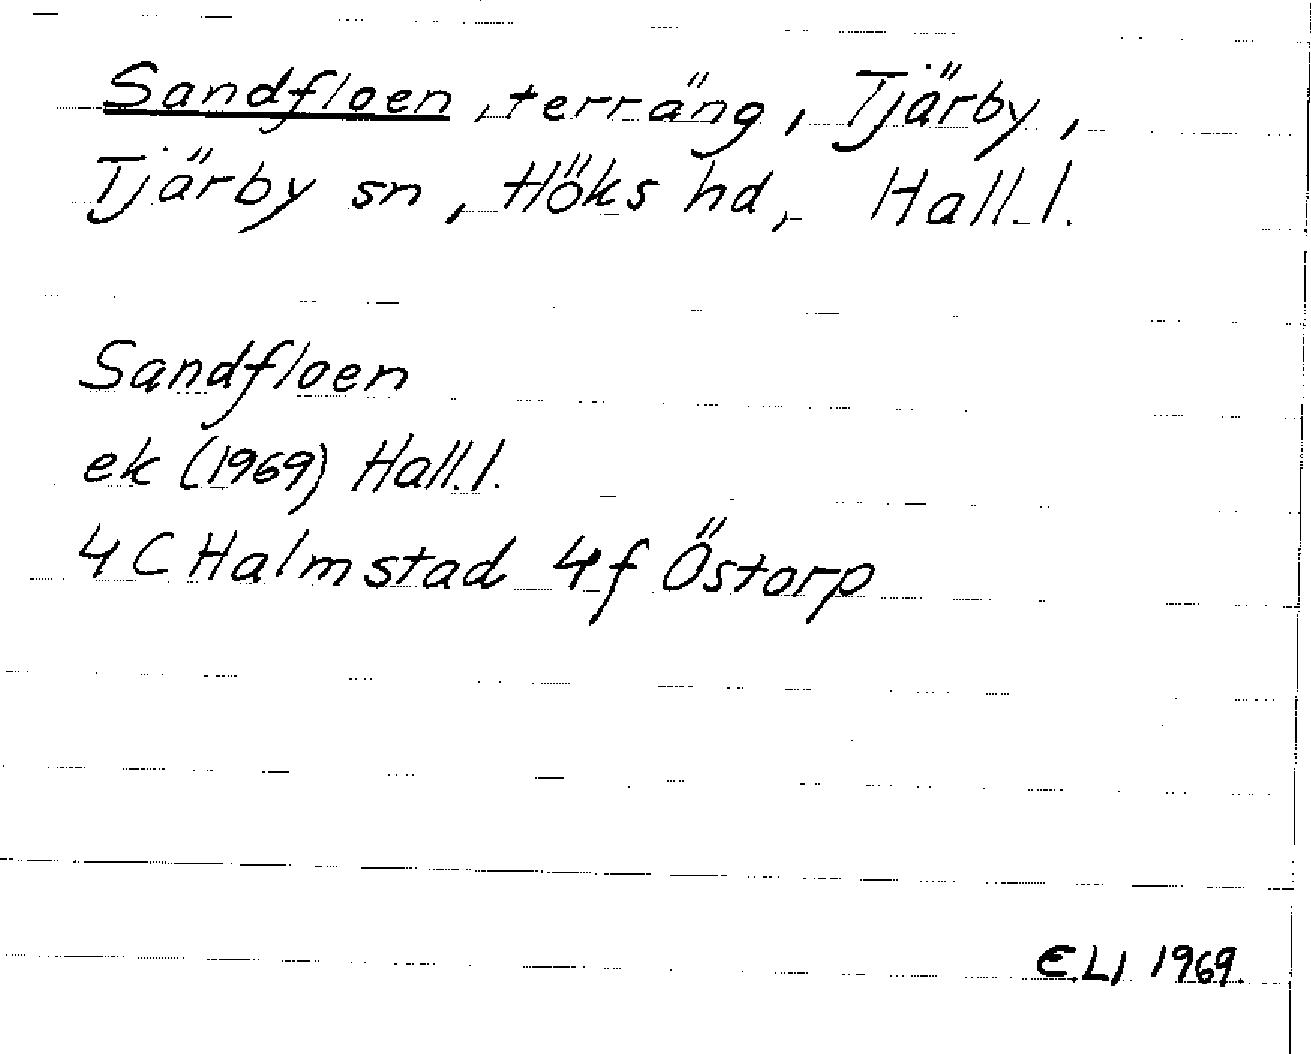 Sandfloen, terräng, Tjärby,
Tjärby sn, Höks hd, Hall. l.
Sandfloen
ek (1969) Hall. l.
4 C Halmstad 4f Östorp
ELI 1969.